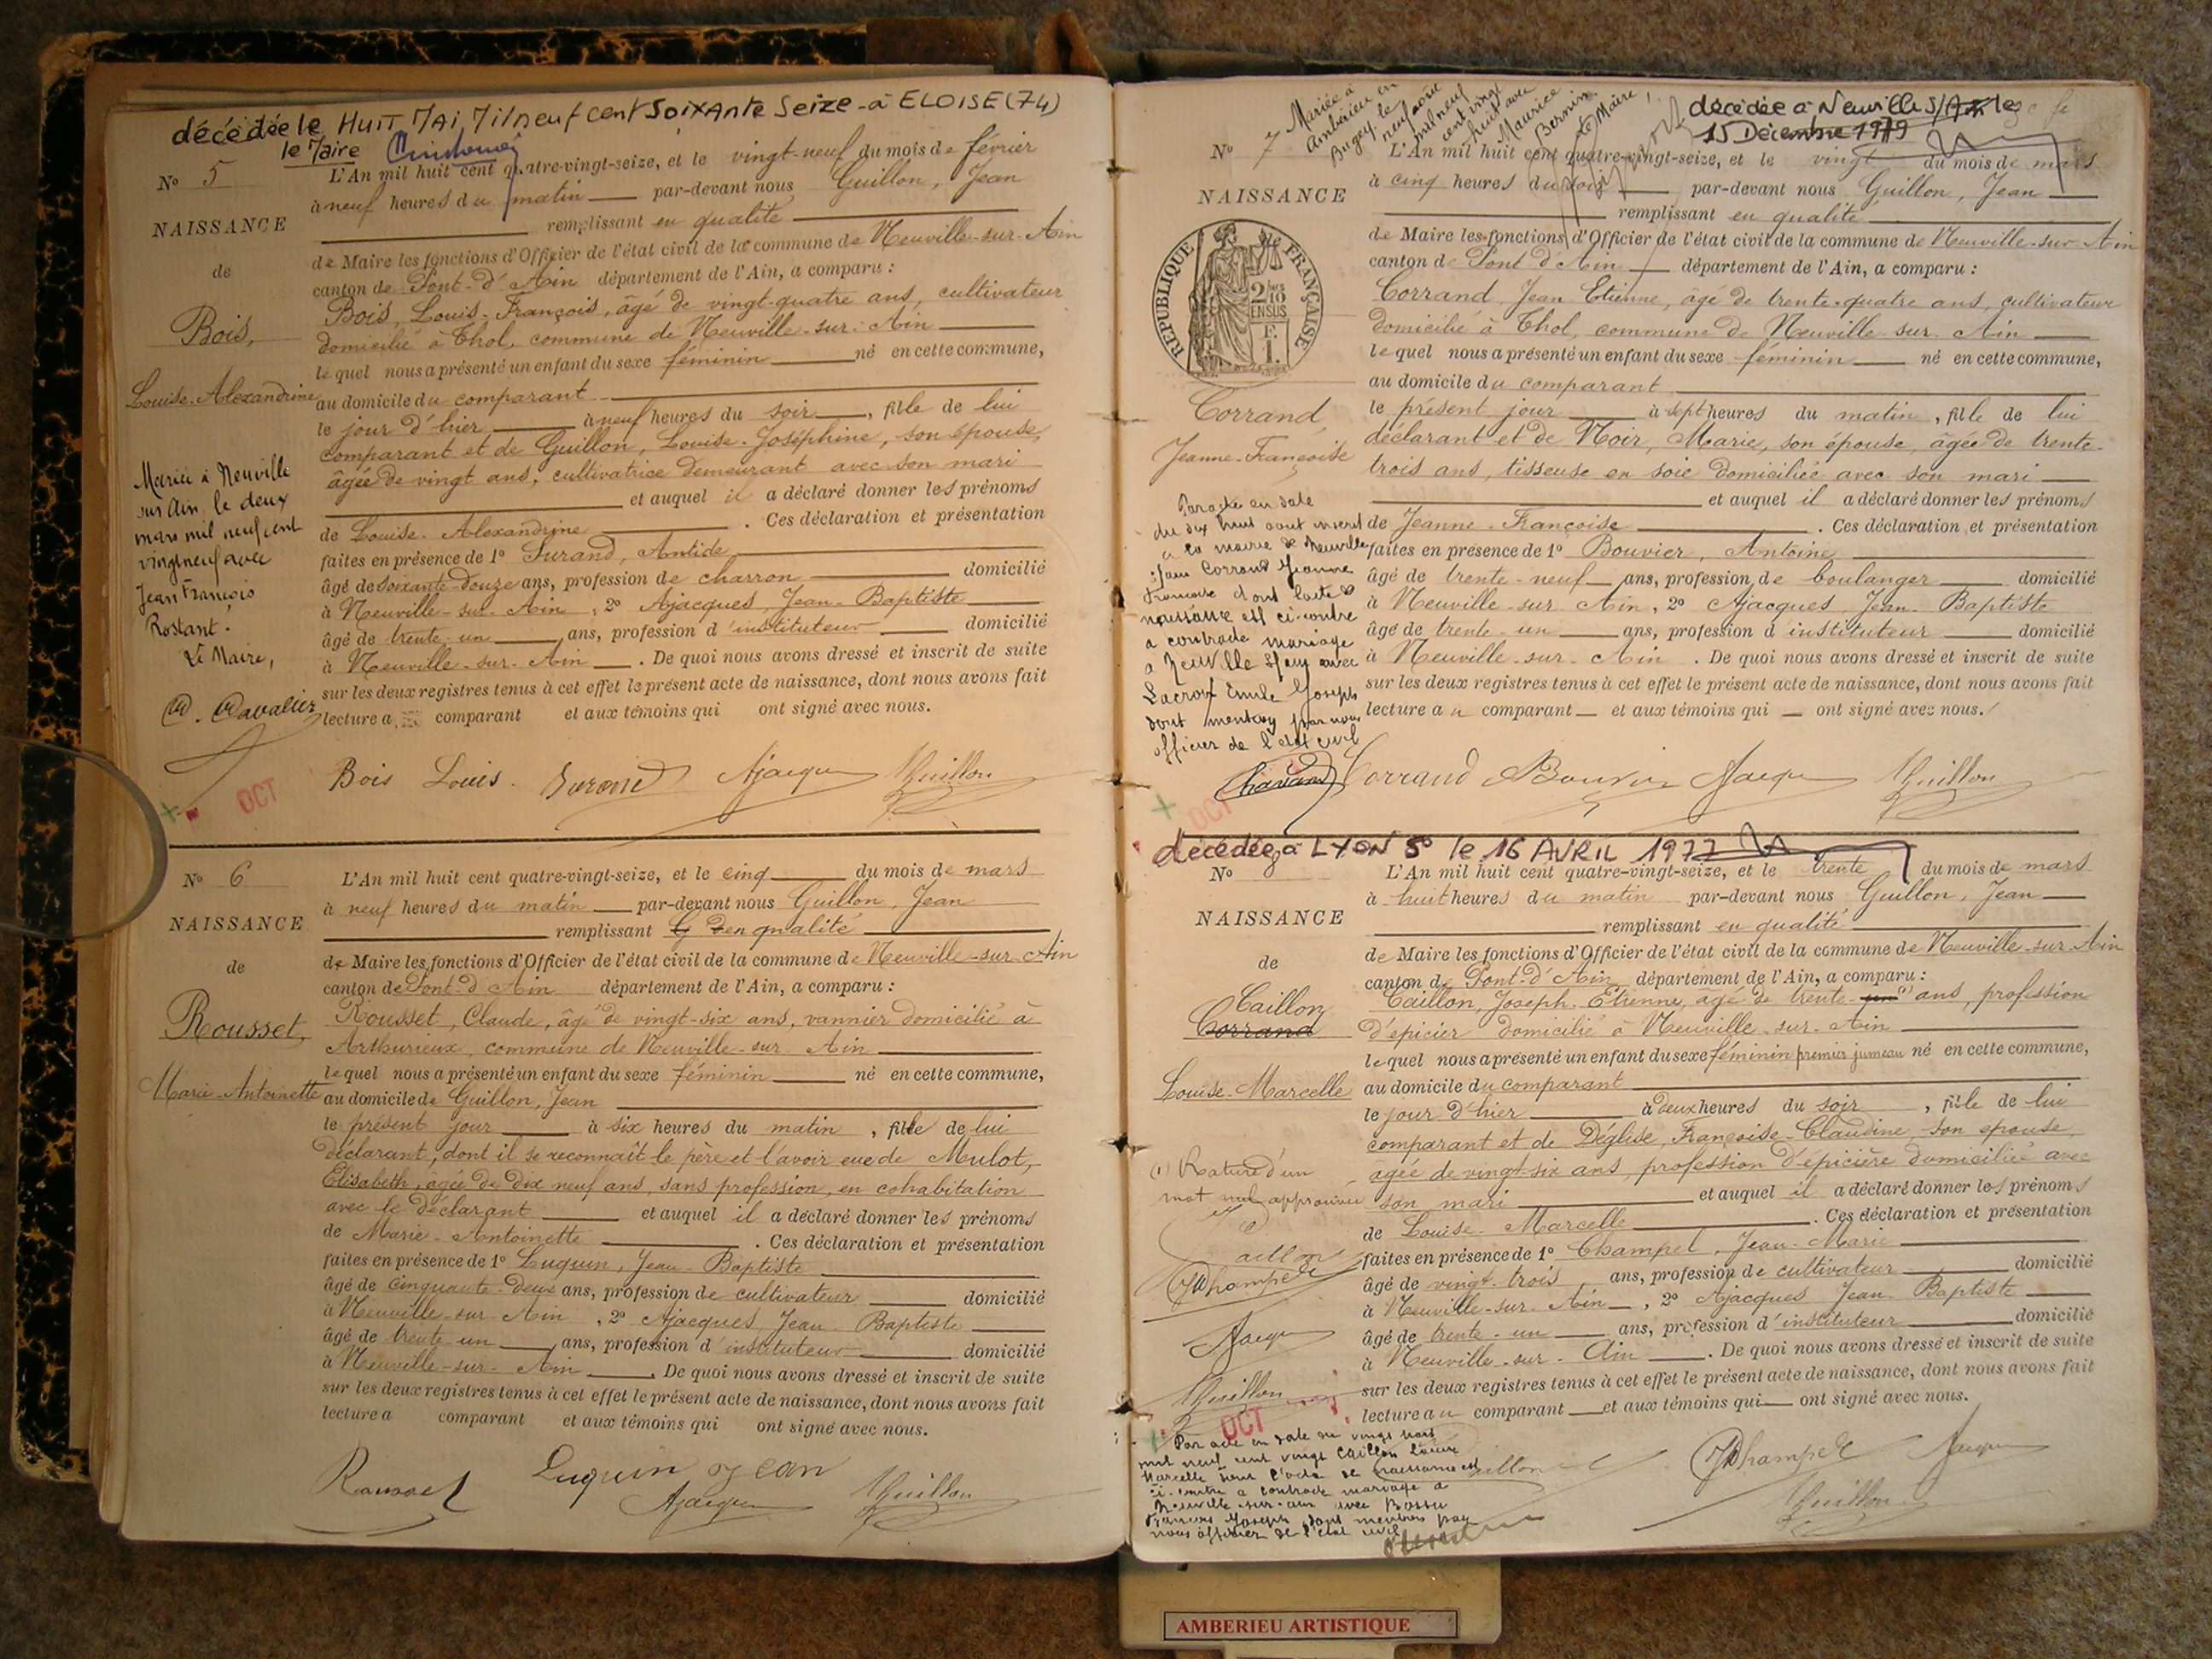 décédée le HUIT MAI Mil neuf cent Soixante Seize - à ELOISE (74)
le Maire
N° 5
NAISSANCE
de
Bois,
Louise-Alexandrine
Mariée à Neuville
sur Ain le deux
mars mil neuf cent
vingt neuf avec
Jean François
Rostant.
Le Maire,
Cavalier
L'An mil huit cent quatre-vingt-seize, et le vingt-neuf du mois de février
à neuf heures du matin par-devant nous Guillon, Jean
remplissant en qualité
de Maire les fonctions d'Officier de l'état civil de la commune de Neuville-sur-Ain
canton de Pont-d'Ain département de l'Ain, a comparu :
Bois, Louis-François, âgé de vingt-quatre ans, cultivateur
domicilié à Thol, commune de Neuville-sur-Ain
lequel nous a présenté un enfant du sexe féminin né en cette commune,
au domicile du comparant
le jour d'hier à neuf heures du soir, fille de lui
comparant et de Guillon, Louise-Joséphine, son épouse,
âgée de vingt ans, cultivatrice demeurant avec son mari
et auquel il a déclaré donner les prénoms
de Louise-Alexandrine. Ces déclaration et présentation
faites en présence de 1° Durand, Antide
âgé de soixante-douze ans, profession de charron domicilié
à Neuville-sur-Ain, 2° Ajacques, Jean-Baptiste
âgé de trente-un ans, profession d'instituteur domicilié
à Neuville-sur-Ain. De quoi nous avons dressé et inscrit de suite
sur les deux registres tenus à cet effet le présent acte de naissance, dont nous avons fait
lecture a comparant et aux témoins qui ont signé avec nous.
Bois Louis. Durand Ajacques Guillon
OCT
N° 6
NAISSANCE
de
Rousset,
Marie-Antoinette
L'An mil huit cent quatre-vingt-seize, et le cinq du mois de mars
à neuf heures du matin par-devant nous Guillon, Jean
remplissant en qualité
de Maire les fonctions d'Officier de l'état civil de la commune de Neuville-sur-Ain
canton de Pont-d'Ain département de l'Ain, a comparu :
Rousset, Claude, âgé de vingt-six ans, vannier domicilié à
Arthurieux, commune de Neuville-sur-Ain
lequel nous a présenté un enfant du sexe féminin né en cette commune,
au domicile de Guillon, Jean
le présent jour à six heures du matin, fille de lui
déclarant, dont il se reconnaît le père et l'avoir eue de Mulot,
Elisabeth, agée de dix neuf ans, sans profession, en cohabitation
avec le déclarant et auquel il a déclaré donner les prénoms
de Marie-Antoinette. Ces déclaration et présentation
faites en présence de 1° Luquin, Jean-Baptiste
âgé de cinquante-deux ans, profession de cultivateur domicilié
à Neuville-sur-Ain, 2° Ajacques, Jean-Baptiste
âgé de trente-un ans, profession d'instituteur domicilié
à Neuville-sur-Ain. De quoi nous avons dressé et inscrit de suite
sur les deux registres tenus à cet effet le présent acte de naissance, dont nous avons fait
lecture a comparant et aux témoins qui ont signé avec nous.
Rousset Luquin Jean Ajacques Guillon
Mariée à
Ambérieu en
Bugey le
neuf août
mil neuf
cent vingt
huit avec
Maurice
Bernin
Le Maire,
décédée à Neuville s/Ain le
15 Décembre 1979
N° 7
NAISSANCE
REPUBLIQUE FRANÇAISE
2/10 EN SUS
F. 1.
Corrand,
Jeanne-Françoise
Par acte en date
du dix huit août inscrit
à la mairie de Neuville
s/ain Corrand Jeanne
Francoise dont l'acte de
naissance est ci-contre
a contracté mariage
a Neuville s/ain avec
Lacroix Emile Joseph
dont mention par nous
officier de l'état civil
L'An mil huit cent quatre-vingt-seize, et le vingt du mois de mars
à cinq heures du soir par-devant nous Guillon, Jean
remplissant en qualité
de Maire les fonctions d'Officier de l'état civil de la commune de Neuville-sur-Ain
canton de Pont d'Ain département de l'Ain, a comparu :
Corrand, Jean Etienne, âgé de trente-quatre ans, cultivateur
domicilié à Thol, commune de Neuville-sur-Ain
lequel nous a présenté un enfant du sexe féminin né en cette commune,
au domicile du comparant
le présent jour à sept heures du matin, fille de lui
déclarant et de Noir, Marie, son épouse, âgée de trente-
trois ans, tisseuse en soie domiciliée avec son mari
et auquel il a déclaré donner les prénoms
de Jeanne-Françoise. Ces déclaration et présentation
faites en présence de 1° Bouvier, Antoine
âgé de trente-neuf ans, profession de boulanger domicilié
à Neuville-sur-Ain, 2° Ajacques, Jean-Baptiste
âgé de trente-un ans, profession d'instituteur domicilié
à Neuville-sur-Ain. De quoi nous avons dressé et inscrit de suite
sur les deux registres tenus à cet effet le présent acte de naissance, dont nous avons fait
lecture au comparant et aux témoins qui ont signé avec nous.
Corrand Bouvier Ajacques Guillon
OCT
décédée à LYON 5° le 16 AVRIL 1977
N°
NAISSANCE
de
Caillon
Corrand
Louise-Marcelle
(1) Rature d'un
mot nul approuvée
Champel
Ajacques
Guillon
OCT
Par acte en date du vingt mars
mil neuf cent vingt Caillon Louise
Marcelle dont l'acte de naissance est
ci-contre a contracté mariage à
Neuville-sur-ain avec Bossu
François Joseph dont mention par
nous officier de l'état civil
L'An mil huit cent quatre-vingt-seize, et le trente du mois de mars
à huit heures du matin par-devant nous Guillon, Jean
remplissant en qualité
de Maire les fonctions d'Officier de l'état civil de la commune de Neuville-sur-Ain
canton de Pont-d'Ain département de l'Ain, a comparu :
Caillon, Joseph-Etienne, agé de trente-un (1) ans, profession
d'épicier domicilié à Neuville-sur-Ain
lequel nous a présenté un enfant du sexe féminin premier jumeau né en cette commune,
au domicile du comparant
le jour d'hier à deux heures du soir, fille de lui
comparant et de Déglise, Françoise-Claudine, son épouse,
agée de vingt-six ans, profession d'épicière domiciliée avec
son mari et auquel il a déclaré donner les prénoms
de Louise-Marcelle. Ces déclaration et présentation
faites en présence de 1° Champel, Jean-Marie
âgé de vingt-trois ans, profession de cultivateur domicilié
à Neuville-sur-Ain, 2° Ajacques Jean-Baptiste
âgé de trente-un ans, profession d'instituteur domicilié
à Neuville-sur-Ain. De quoi nous avons dressé et inscrit de suite
sur les deux registres tenus à cet effet le présent acte de naissance, dont nous avons fait
lecture au comparant et aux témoins qui ont signé avec nous.
Caillon Champel Ajacques
Guillon
AMBERIEU ARTISTIQUE